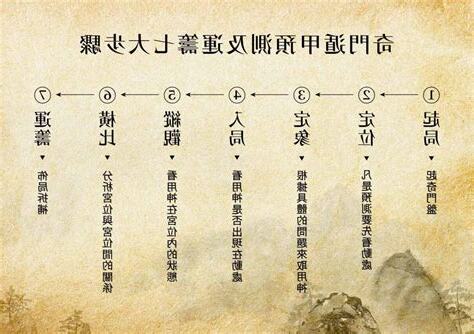 奇門遁甲預測及運籌七大步驟
①
起局
起奇門盤
②
定位
凡是預測要先看動處
③
定象
根據具體的問題來取用神
④
入局
看用神是否出現在動處
⑤
縱觀
看用神在宮位內的狀態
⑥
橫比
分析宮位與宮位間的關係
⑦
運籌
佈局拆補